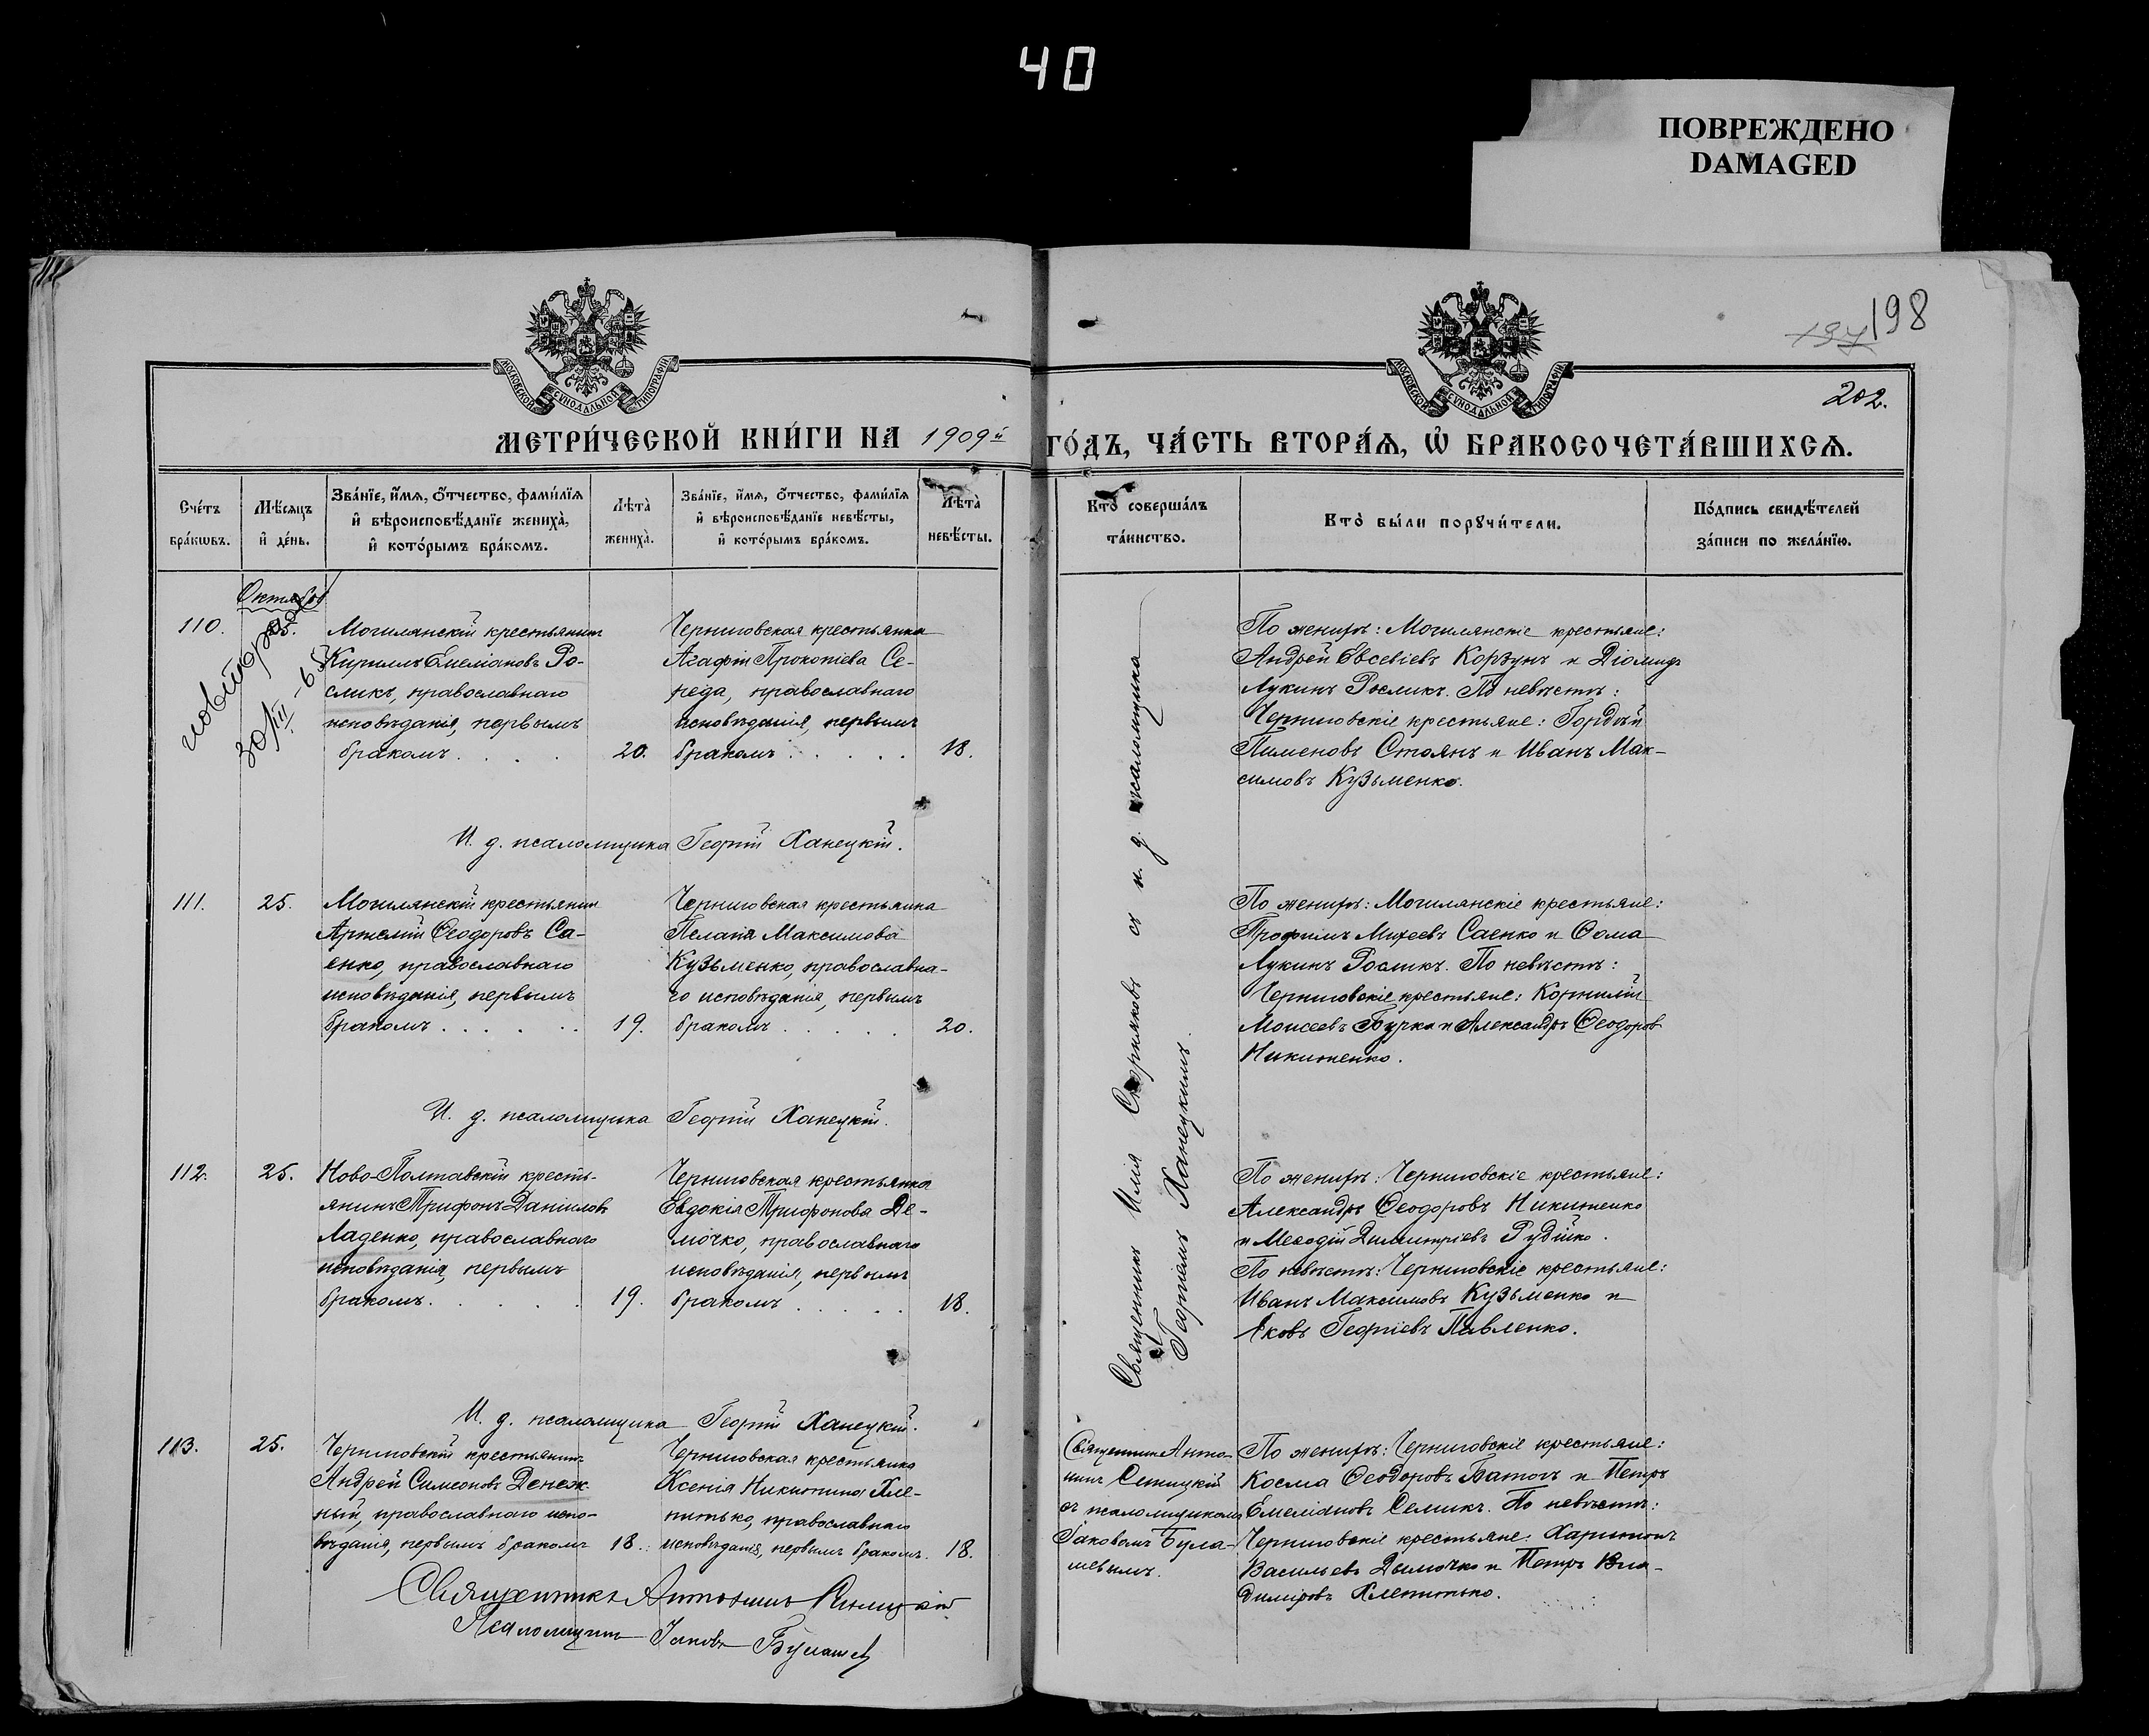 40
ПОВРЕЖДЕНО
DAMAGED
198
197
202.
МОСКОВСКОЙ СѴНОДАЛЬНОЙ ТИПОГРАФІИ
МОСКОВСКОЙ СѴНОДАЛЬНОЙ ТИПОГРАФІИ
МЕТРИ́ЧЕСКОЙ КНИ́ГИ НА 1909й
ГО́ДЪ, ЧА́СТЬ ВТОРА́Ѧ, Ѡ БРАКОСОЧЕТА́ВШИХСѦ.
Сче́тъ
бра́кωвъ.
Мѣ́сѧцъ
и҆ де́нь.
Зва́нїе, и҆́мѧ, ѻ҆́тчество, фами́лїѧ
и҆ вѣроисповѣ́данїе жениха̀,
и҆ кото́рымъ бра́комъ.
Лѣта̀
жениха̀.
Зва́нїе, и҆́мѧ, ѻ҆́тчество, фами́лїѧ
и҆ вѣроисповѣ́данїе невѣ́сты,
и҆ кото́рымъ бра́комъ.
Лѣта̀
невѣ́сты.
Кто̀ соверша́лъ
та́инство.
Кто̀ бы́ли порꙋчи́тели.
По́дпись свидѣ́телей
за́писи по жела́нїю.
Октябрь
110.
25.
Могилянскій крестьянинъ
Кириллъ Емеліановъ Ро-
сликъ, православнаго
исповѣданія, первымъ
бракомъ . . . .
20.
Черниговская крестьянка
Агафія Прокопіева Се-
реда, православнаго
исповѣданія, первымъ
бракомъ . . . . .
18.
По женихѣ: Могилянскіе крестьяне:
Андрей Евсевіевъ Корзунъ и Діомидъ
Лукинъ Росликъ. По невѣстѣ:
Черниговскіе крестьяне: Гордѣй
Пименовъ Стоянъ и Иванъ Мак-
симовъ Кузьменко.
И. д. псаломщика Георгій Ханецкій.
111.
25.
Могилянскій крестьянин
Артемій Ѳеодоровъ Са-
енко, православнаго
исповѣданія, первымъ
бракомъ . . . . .
19.
Черниговская крестьянка
Пелагія Максимова
Кузьменко, православна-
го исповѣданія, первымъ
бракомъ . . . .
20.
По женихѣ: Могилянскіе крестьяне:
Трофимъ Михеевъ Саенко и Ѳома
Лукинъ Росликъ. По невѣстѣ:
Черниговскіе крестьяне: Корнилій
Моисеевъ Бурка и Александръ Ѳеодоров
Никитенко.
И. д. псаломщика Георгій Ханецкій.
112.
25.
Ново-Полтавскій кресть-
янинъ Трифонъ Даніиловъ
Ладенко, православнаго
исповѣданія, первымъ
бракомъ. . . . . .
19.
Черниговская крестьянка
Евдокія Трифонова Де-
мочко, православнаго
исповѣданія, первымъ
бракомъ . . . . .
18.
Священникъ Илія Скорняковъ съ и. д. псаломщика
Георгіемъ Ханецкимъ.
По женихѣ: Черниговскіе крестьяне:
Александръ Ѳеодоровъ Никитенко
и Меѳодій Димитріевъ Рудійко.
По невѣстѣ: Черниговскіе крестьяне:
Иванъ Максимовъ Кузьменко и
Яковъ Георгіевъ Павленко.
И. д. псаломщика Георгій Ханецкій.
113.
25.
Черниговскій крестьянинъ
Андрей Симеоновъ Денеж-
ный, православнаго испо-
вѣданія, первымъ бракомъ
18.
Черниговская крестьянка
Ксенія Никитина Хле-
питько, православнаго
исповѣданія, первымъ бракомъ.
18.
Священник Анто-
нинъ Синицкій
съ псаломщикомъ
Іаковомъ Була-
шевымъ.
По женихѣ: Черниговскіе крестьяне:
Косма Ѳеодоровъ Батогъ и Петръ
Емеліановъ Семикъ. По невѣстѣ:
Черниговскіе крестьяне: Харитонъ
Васильевъ Дымочко и Петръ Вла-
диміровъ Хлепитько.
Священникъ Антонинъ Синицкій
Псаломщикъ Іаковъ Булашев